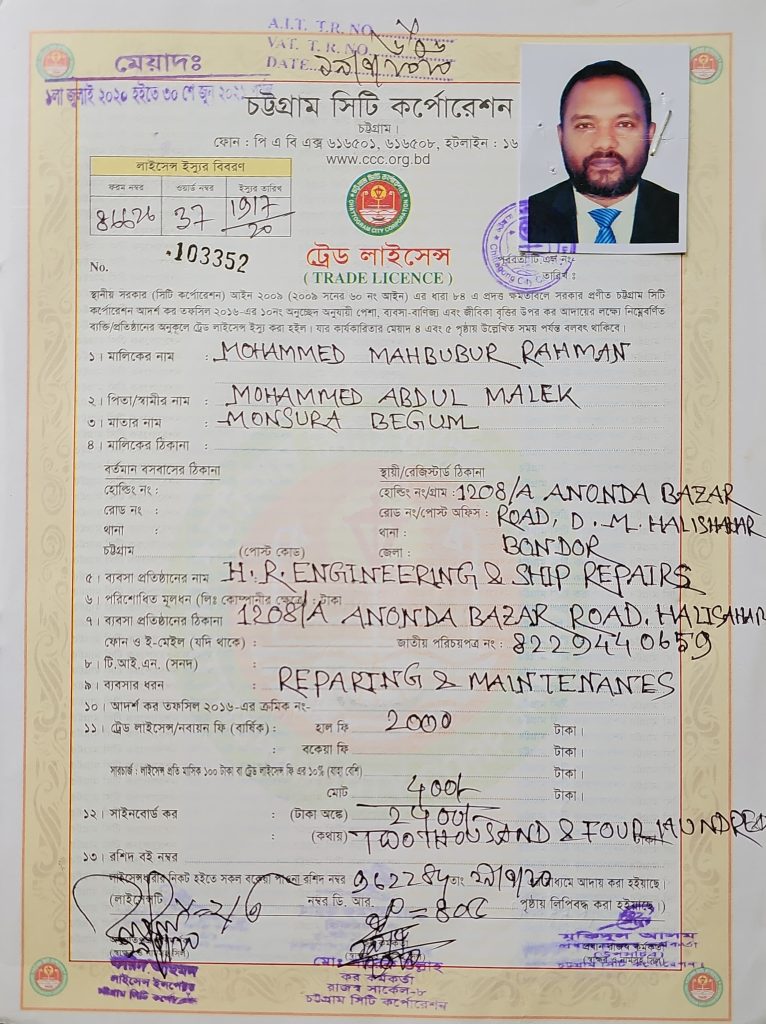 A.I.T. T.R. NO.
VAT. T. R. NO.
DATE
মেয়াদঃ
১লা জুলাই ২০২০ হইতে ৩০ শে জুন ২০২১
চট্টগ্রাম সিটি কর্পোরেশন
চট্টগ্রাম।
ফোন : পি এ বি এক্স ৬১৬৫০১, ৬১৬৫০৮, হটলাইন : ১৬
www.ccc.org.bd
লাইসেন্স ইস্যুর বিবরণ
ফরম নম্বর ওয়ার্ড নম্বর ইস্যুর তারিখ
37 19/7/20
No. 103352
ট্রেড লাইসেন্স
( TRADE LICENCE )
তারিখ ঃ
স্থানীয় সরকার (সিটি কর্পোরেশন) আইন ২০০৯ (২০০৯ সনের ৬০ নং আইন) এর ধারা ৮৪ এ প্রদত্ত ক্ষমতাবলে সরকার প্রণীত চট্টগ্রাম সিটি
কর্পোরেশন আদর্শ কর তফসিল ২০১৬-এর ১০নং অনুচ্ছেদ অনুযায়ী পেশা, ব্যবসা-বাণিজ্য এবং জীবিকা বৃত্তির উপর কর আদায়ের লক্ষ্যে নিম্নেবর্ণিত
ব্যক্তি/প্রতিষ্ঠানের অনুকূলে ট্রেড লাইসেন্স ইস্যু করা হইল। যার কার্যকারিতার মেয়াদ ৪ এবং ৫ পৃষ্ঠায় উল্লেখিত সময় পর্যন্ত বলবৎ থাকিবে।
১। মালিকের নাম : MOHAMMED MAHBUBUR RAHMAN
২। পিতা/স্বামীর নাম : MOHAMMED ABDUL MALEK
৩। মাতার নাম : MONSURA BEGUM
৪। মালিকের ঠিকানা :
বর্তমান বসবাসের ঠিকানা স্থায়ী/রেজিস্টার্ড ঠিকানা
হোল্ডিং নং : হোল্ডিং নং/গ্রাম : 1208/A ANONDA BAZAR
রোড নং : রোড নং/পোস্ট অফিস : ROAD, D. M. HALISHAHAR
থানা : থানা : BONDOR
চট্টগ্রাম (পোস্ট কোড) জেলা :
৫। ব্যবসা প্রতিষ্ঠানের নাম : H. R. ENGINEERING & SHIP REPAIRS
৬। পরিশোধিত মূলধন (লিঃ কোম্পানীর ক্ষেত্রে) : টাকা
৭। ব্যবসা প্রতিষ্ঠানের ঠিকানা : 1208/A ANONDA BAZAR ROAD. HALISAHAR
ফোন ও ই-মেইল (যদি থাকে) : জাতীয় পরিচয়পত্র নং : 8229440659
৮। টি.আই.এন. (সনদ) :
৯। ব্যবসার ধরন : REPARING & MAINTENANES
১০। আদর্শ কর তফসিল ২০১৬-এর ক্রমিক নং-
১১। ট্রেড লাইসেন্স/নবায়ন ফি (বার্ষিক) : হাল ফি 2000 টাকা।
: বকেয়া ফি টাকা।
সারচার্জ : লাইসেন্স প্রতি মাসিক ১০০ টাকা বা ট্রেড লাইসেন্স ফি এর ১০% (যাহা বেশি) টাকা।
মোট 400/- টাকা।
১২। সাইনবোর্ড কর : (টাকা অঙ্কে) 2400/-
: (কথায়) TWO THOUSAND & FOUR HUNDRED
১৩। রশিদ বই নম্বর
লাইসেন্সধারীর নিকট হইতে সকল বকেয়া পাওনা রশিদ নম্বর তাং মাধ্যমে আদায় করা হইয়াছে।
(লাইসেন্সটি নম্বর ডি. আর. পৃষ্ঠায় লিপিবদ্ধ করা হইয়াছে।)
লাইসেন্স ইন্সপেক্টর
চট্টগ্রাম সিটি কর্পোরেশন
কর কর্মকর্তা
রাজস্ব সার্কেল-৮
চট্টগ্রাম সিটি কর্পোরেশন